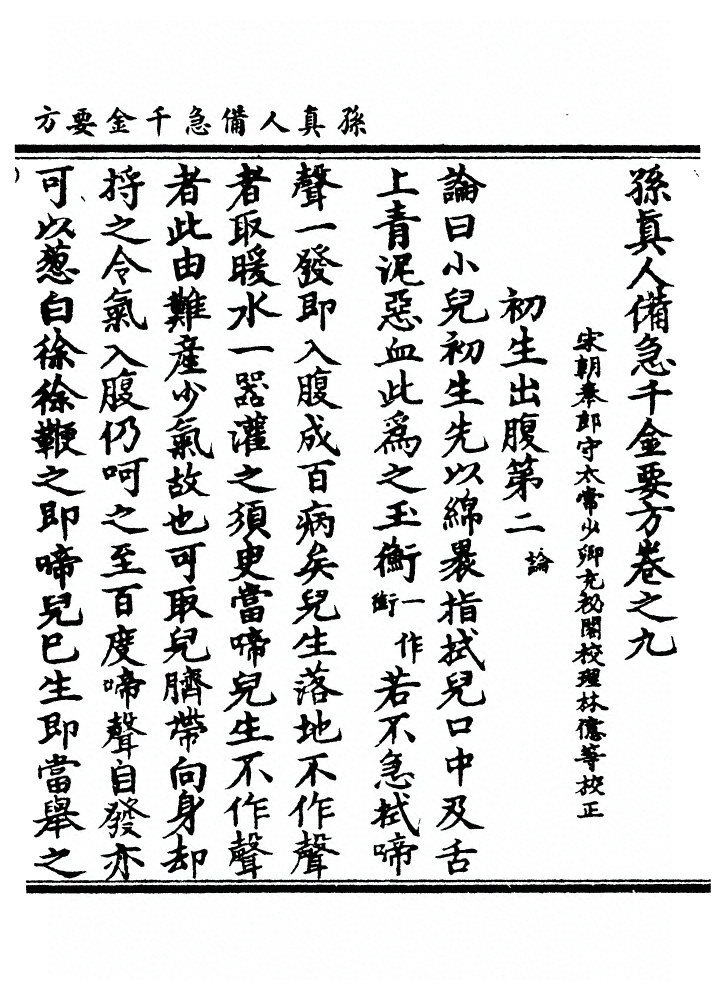 孫真人備急千金要方
孫真人備急千金要方卷之九
宋朝奉郎守太常少卿充祕閣校理林億等校正
初生出腹第二 論
論曰小兒初生先以綿裹指拭兒口中及舌
上青泥惡血此為之玉衡一作衝若不急拭啼
聲一發即入腹成百病矣兒生落地不作聲
者取暖水一器灌之須臾當啼兒生不作聲
者此由難產少氣故也可取兒臍帶向身却
捋之令氣入腹仍呵之至百度啼聲自發亦
可以葱白徐徐鞭之即啼兒巳生即當舉之